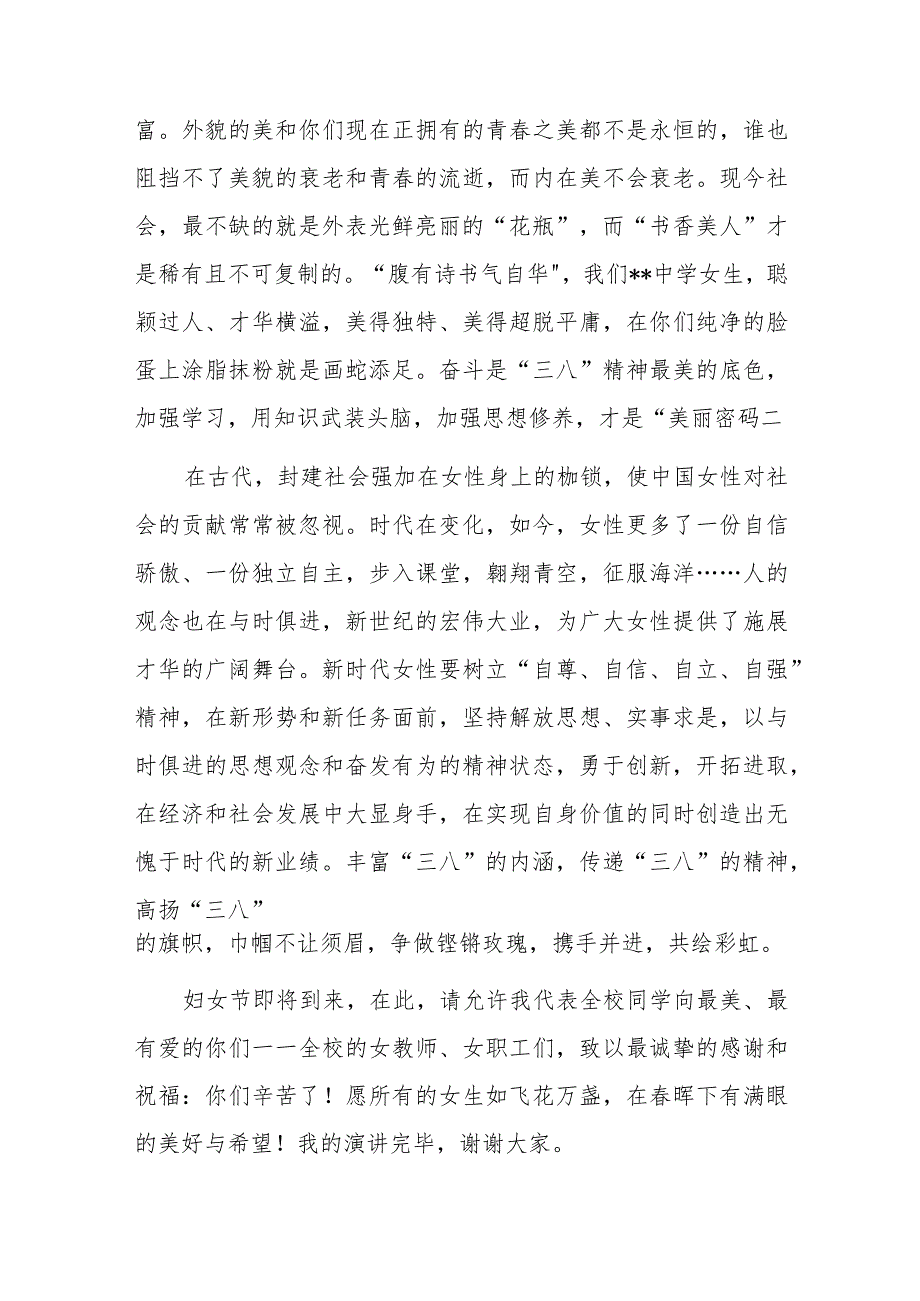 富。外貌的美和你们现在正拥有的青春之美都不是永恒的，谁也
阻挡不了美貌的衰老和青春的流逝，而内在美不会衰老。现今社
会，最不缺的就是外表光鲜亮丽的“花瓶”，而“书香美人”才
是稀有且不可复制的。“腹有诗书气自华"，我们**中学女生，聪
颖过人、才华横溢，美得独特、美得超脱平庸，在你们纯净的脸
蛋上涂脂抹粉就是画蛇添足。奋斗是“三八”精神最美的底色，
加强学习，用知识武装头脑，加强思想修养，才是“美丽密码二
在古代，封建社会强加在女性身上的枷锁，使中国女性对社
会的贡献常常被忽视。时代在变化，如今，女性更多了一份自信
骄傲、一份独立自主，步入课堂，翱翔青空，征服海洋……人的
观念也在与时俱进，新世纪的宏伟大业，为广大女性提供了施展
才华的广阔舞台。新时代女性要树立“自尊、自信、自立、自强”
精神，在新形势和新任务面前，坚持解放思想、实事求是，以与
时俱进的思想观念和奋发有为的精神状态，勇于创新，开拓进取，
在经济和社会发展中大显身手，在实现自身价值的同时创造出无
愧于时代的新业绩。丰富“三八”的内涵，传递“三八”的精神，
高扬“三八”
的旗帜，巾帼不让须眉，争做铿锵玫瑰，携手并进，共绘彩虹。
妇女节即将到来，在此，请允许我代表全校同学向最美、最
有爱的你们一一全校的女教师、女职工们，致以最诚挚的感谢和
祝福：你们辛苦了！愿所有的女生如飞花万盏，在春晖下有满眼
的美好与希望！我的演讲完毕，谢谢大家。